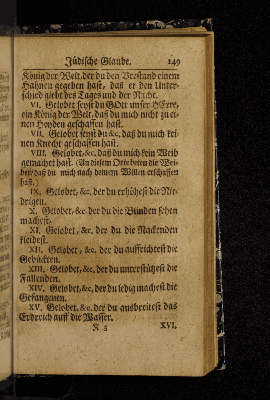 Jüdische Glaube. 149
König der Welt, der du den Verstand einem
Hahnen gegeben hast, daß er den Unter-
schied giebt des Tages und der Nacht.
VI. Gelobet seyst du GOtt unser HErre,
ein König der Welt, daß du mich nicht zu ei-
nen Heyden geschaffen hast.
VII. Gelobet seyst du &c. daß du mich kei-
nen Knecht geschaffen hast.
VIII. Gelobet, &c. daß du mich kein Weib
gemachet hast. (An diesem Ort beten die Wei-
ber, daß du mich nach deinem Willen erschaffen
hast.)
IX. Gelobet, &c. der du erhöhest die Nie-
drigen.
X. Gelobet, &c. der du die Blinden sehen
machest.
XI. Gelobet, &c. der du die Nackenden
kleidest.
XII. Gelobet, &c. der du auffrichtest die
Gebückten.
XIII. Gelobet, &c. der du unterstützest die
Fallenden.
XIV. Gelobet, &c. der du ledig machest die
Gefangenen.
XV. Gelobet, &c. der du ausbreitest das
Erdreich auff die Wasser.
K 3 XVI.